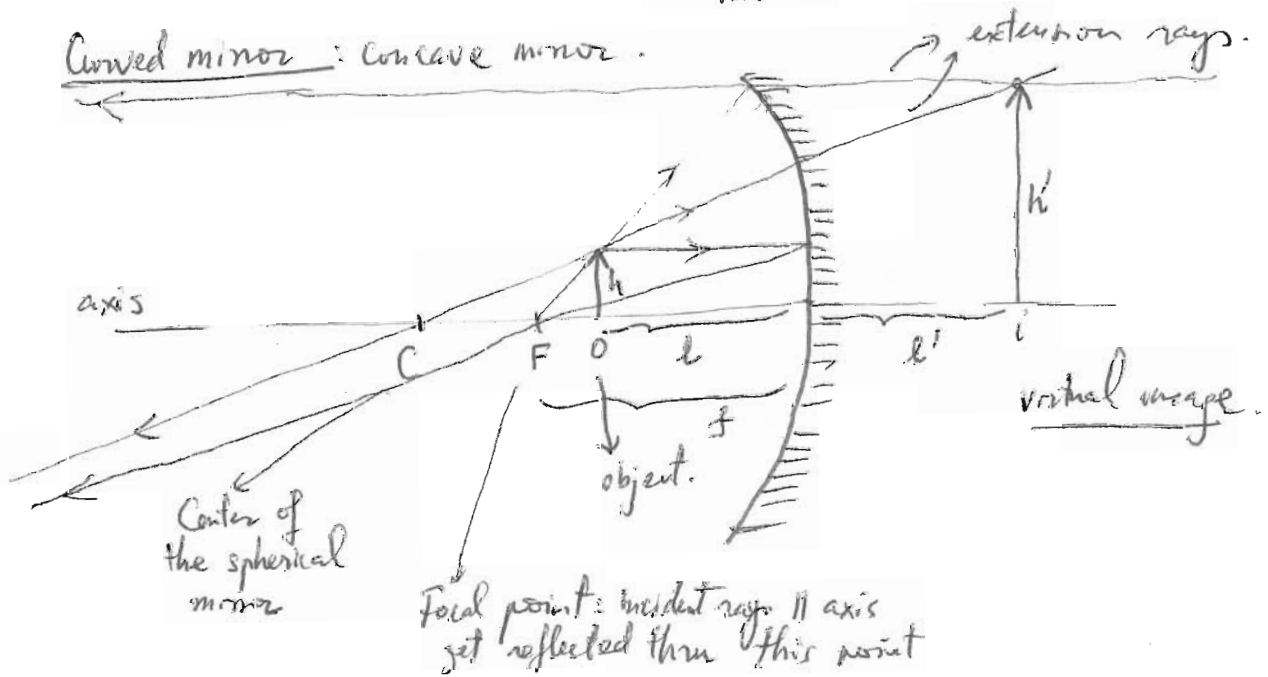 Curved mirror : concave mirror.
extension rays.
h'
h
axis
C
F
O
l
l'
i
f
virtual image.
object.
Center of
the spherical
mirror
Focal point : incident rays || axis
get reflected thru this point